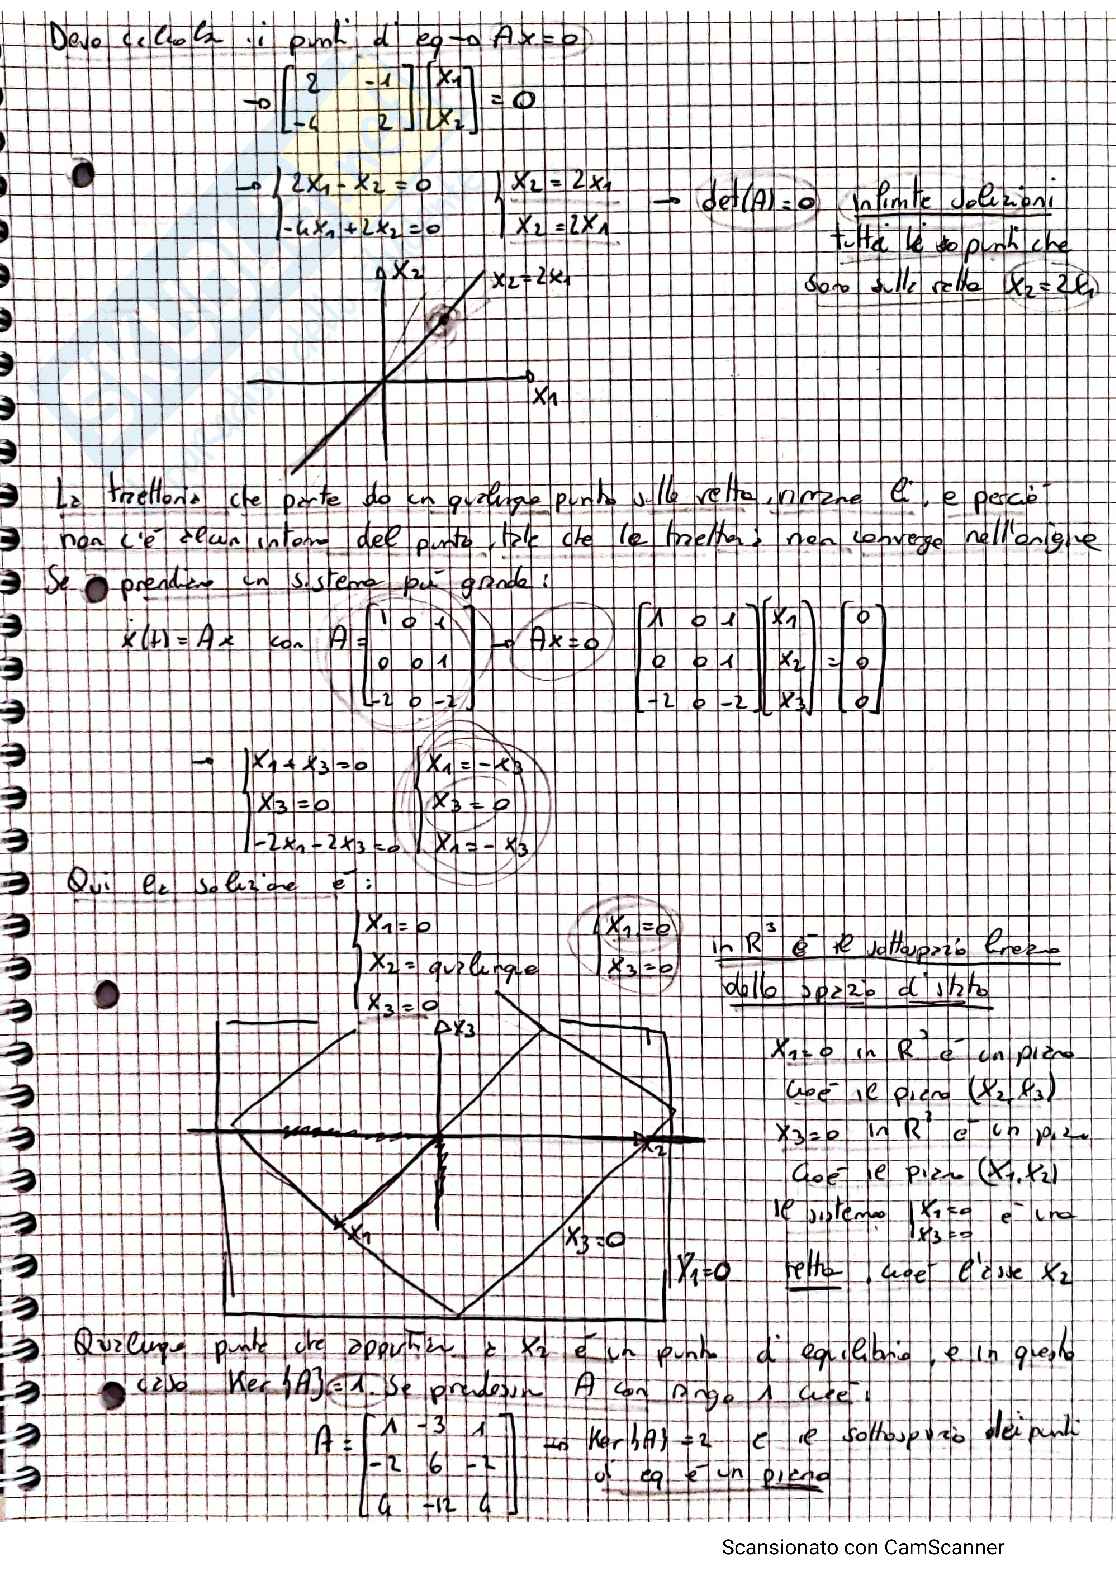 Devo calcola i punti d'eq → Ax=0
→ [2 -1; -4 2] [x1; x2] = 0
→ { 2x1 - x2 = 0 { x2 = 2x1 → det(A)=0 infinite soluzioni
-4x1+2x2=0 x2 = 2x1 tutti i punti che
sono sulla retta x2=2x1
x2
x2=2x1
x1
La traiettoria che parte da un qualunque punto sulla retta, rimane lì, e perciò
non c'è alcun intorno del punto, tale che le traiettorie non converge nell'origine
Se prendiamo un sistema più grande:
ẋ(t) = Ax con A = [1 0 1; 0 0 1; -2 0 -2] → Ax=0 [1 0 1; 0 0 1; -2 0 -2] [x1; x2; x3] = [0; 0; 0]
→ { x1 + x3 = 0 { x1 = -x3
x3 = 0 x3 = 0
-2x1 - 2x3 = 0 x1 = -x3
Qui la soluzione è:
{ x1 = 0 { x1=0
x2 = qualunque x3=0
x3 = 0
in R³ è il sottospazio lineare
dello spazio d'stato
x3
x2
x1
x3=0
x1=0
x1=0 in R³ è un piano
cioè il piano (x2, x3)
x3=0 in R³ è un piano
cioè il piano (x1, x2)
il sistema { x1=0 x3=0 è una
retta, cioè l'asse x2
Qualunque punto che appartien a x2 è un punto d'equilibrio, e in questo
caso Ker{A}=1. Se prendessi A con rango 1 cioè:
A = [1 -3 1; -2 6 -2; 4 -12 4] → Ker{A} = 2 e il sottospazio dei punti
d'eq è un piano
Scansionato con CamScanner